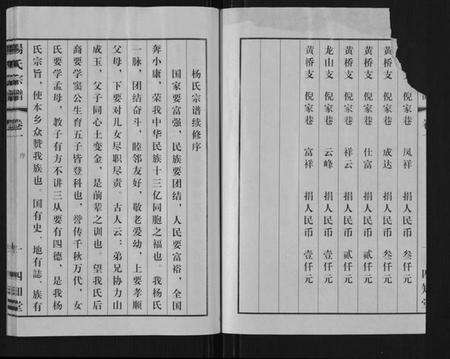 倪家巷 凤祥 捐人民币 叁仟元
黄桥支 倪家巷 成达 捐人民币 叁仟元
黄桥支 倪家巷 仕富 捐人民币 贰仟元
黄桥支 倪家巷 祥云 捐人民币 贰仟元
龙山支 倪家巷 云峰 捐人民币 壹仟元
黄桥支 倪家巷 富祥 捐人民币 壹仟元
杨氏宗谱续修序
国家要富强，民族要团结，人民要富裕，全国
奔小康，荣我中华民族十三亿同胞之福也。我杨氏
一脉，团结奋斗，睦邻友好，敬老爱幼，上要孝顺
父母，下要对儿女尽职尽责。古人云：弟兄协力山
成玉，父子同心土变金，是前辈之训也。望我氏后
裔要学窦公生育五子皆登科也，誉传千秋万代，女
氏要学孟母，教子有方不讲三从要有四德，是我杨
氏宗旨，使本乡众赞我族也。国有史、地有誌、族有
杨氏宗谱 卷一 序 一 四知堂